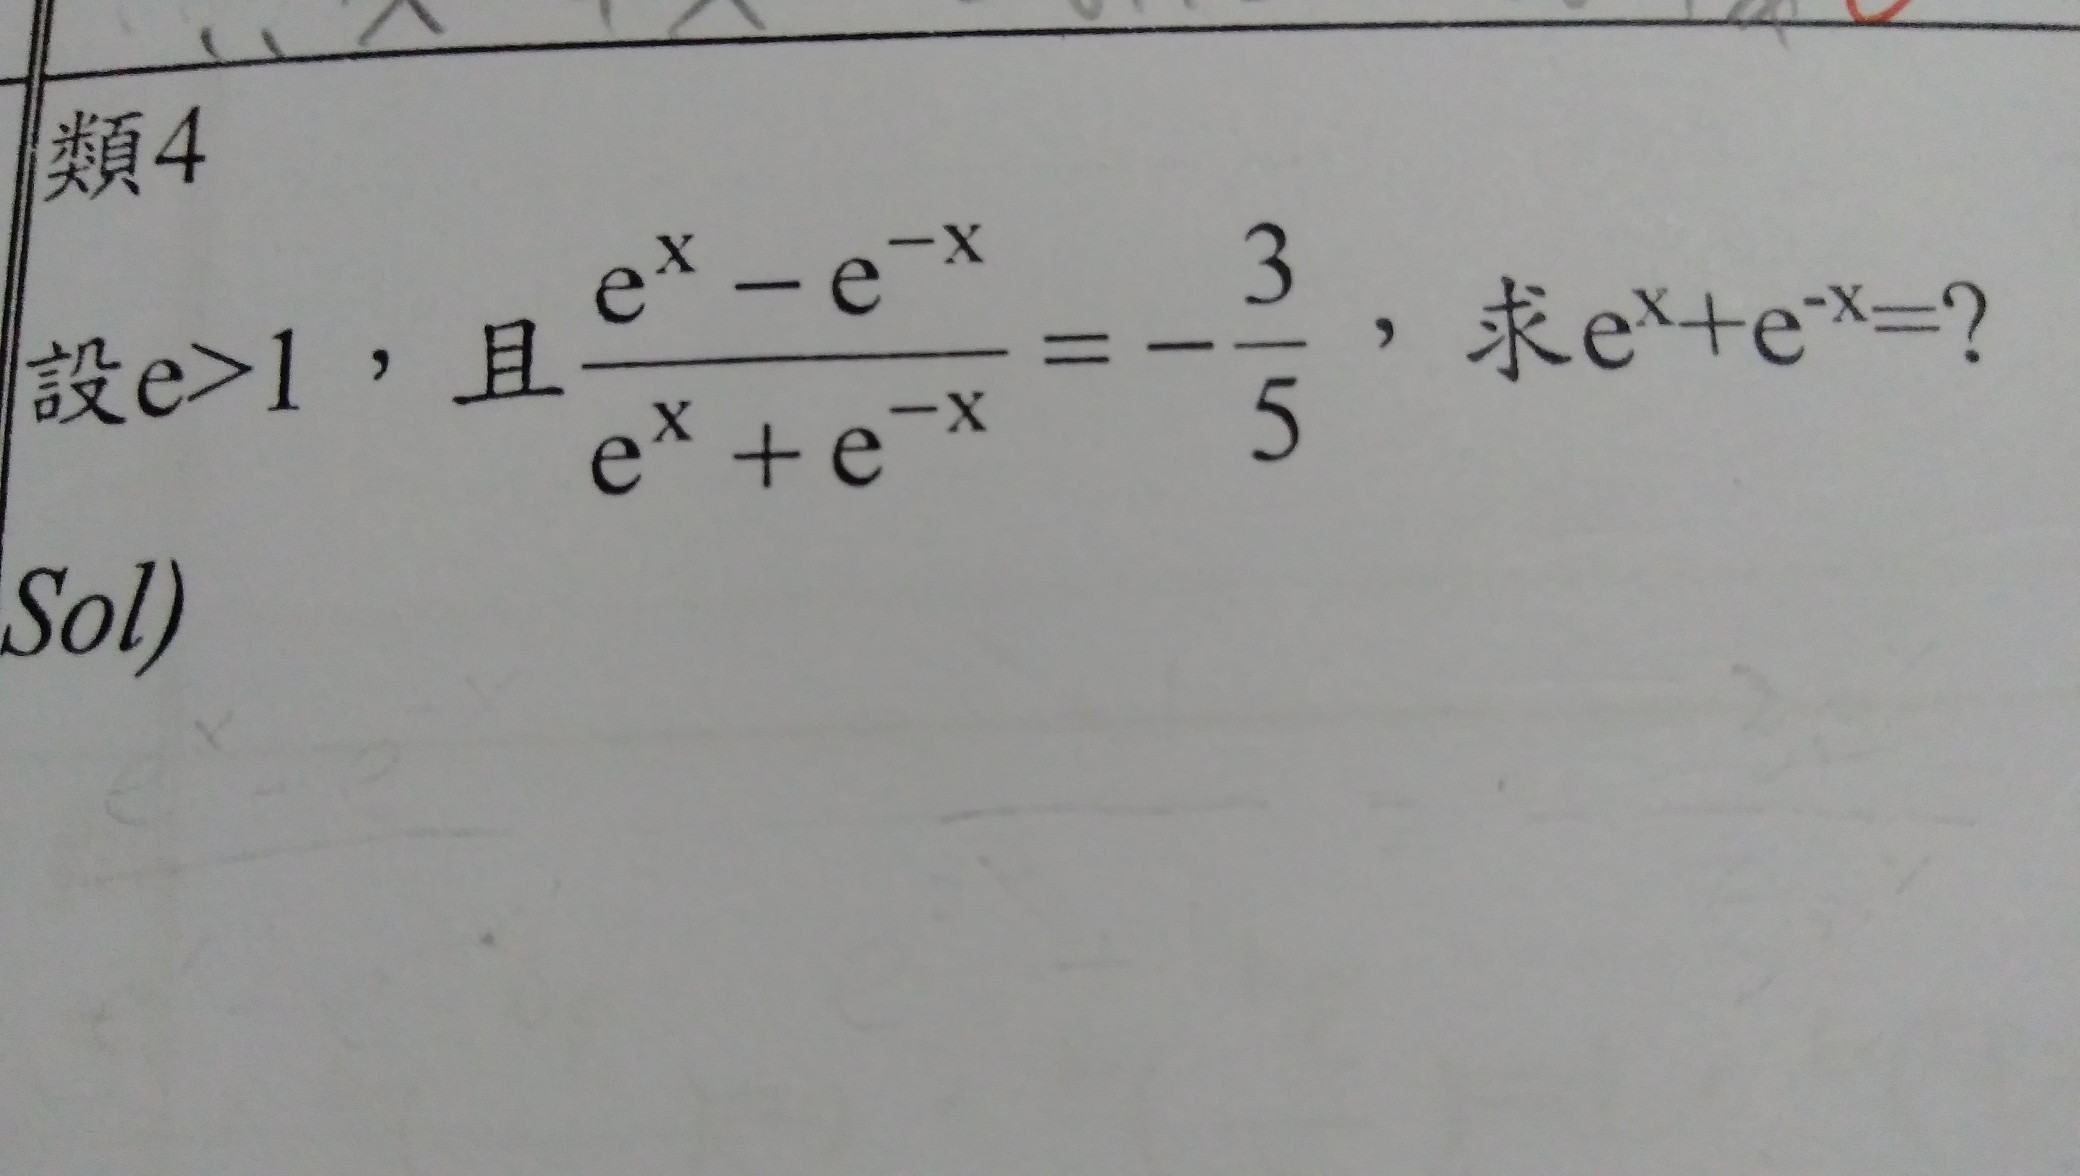 類4
設e>1，且(e^x − e^−x)/(e^x + e^−x) = −3/5，求e^x+e^-x=?
Sol)